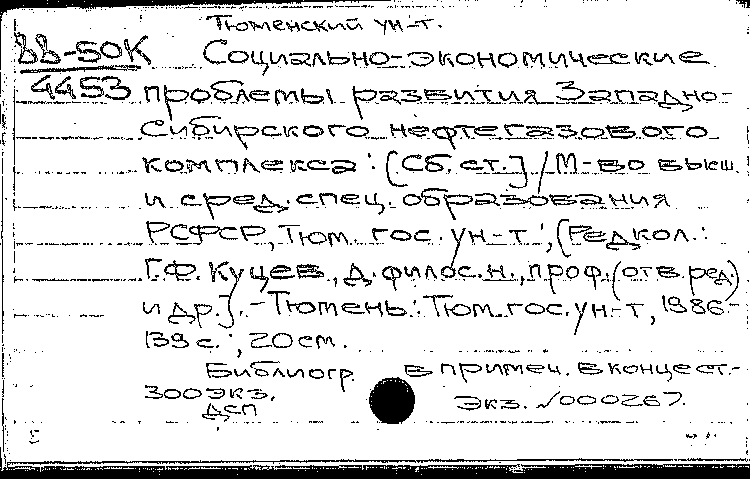 Тюменский ун-т.
88-50К Социально-экономические
4453 проблемы развития Западно-
Сибирского нефтегазового
комплекса: [Сб. ст.] / М-во высш.
и сред. спец. образования
РСФСР, Тюм. гос. ун-т; [Редкол.:
Г.Ф. Куцев, д. филос. н., проф. (отв. ред.)
и др.]. - Тюмень: Тюм. гос. ун-т, 1986. -
139 с.; 20 см.
Библиогр. в примеч. в конце ст. -
300 экз. Экз. №000267.
ДСП